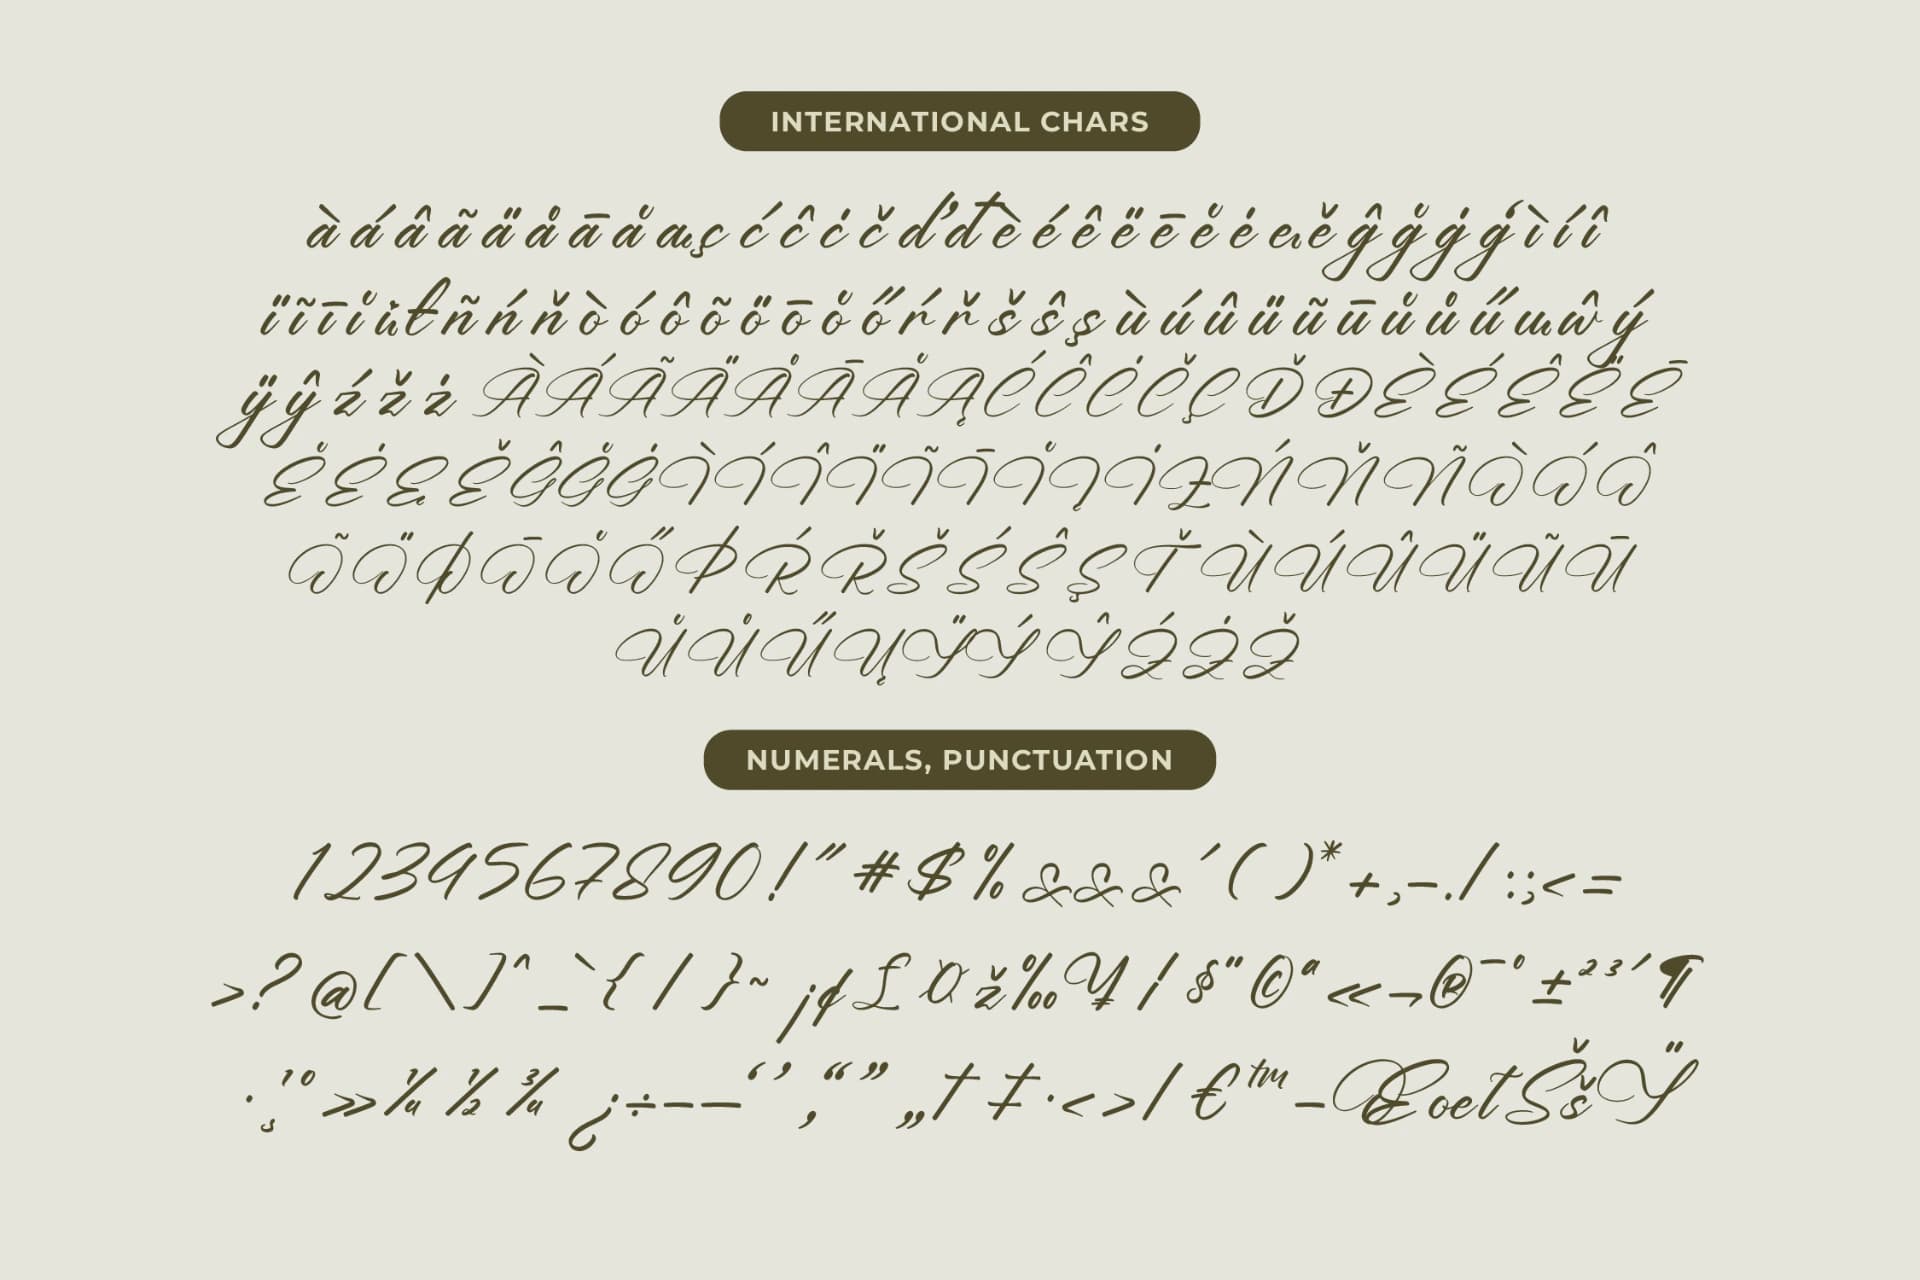 INTERNATIONAL CHARS
à á â ã ä å ā å ą ç ć ĉ ċ č ď đ è é ê ë ē ė ę ě ĝ ğ ġ ģ ì í î
ï ĩ ī į ł ñ ń ň ò ó ô õ ö ō ő ŕ ř š ŝ ş ù ú û ü ũ ū ŭ ů ű ų ŵ ý
ÿ ŷ ź ž ż À Á Ã Ä Å Ā Ă Ą Ć Ĉ Ċ Č Ç Ď Đ È É Ê Ë Ē
Ĕ Ė Ę Ě Ĝ Ğ Ġ Ì Í Î Ï Ĩ Ī Ĭ Į İ Ł Ń Ň Ñ Ò Ó Ô
Õ Ö Ø Ō Ŏ Ő Þ Ŕ Ř Š Ś Ŝ Ş Ť Ù Ú Û Ü Ũ Ū
Ŭ Ů Ű Ų Ÿ Ý Ŷ Ź Ż Ž
NUMERALS, PUNCTUATION
1234567890!" # $ % & & & ' ( ) * + , - . / : ; < =
> ? @ [ \ ] ^ _ ` { | } ~ ¡ ¢ £ ¤ ž ‰ ¥ ¦ § ¨ © ª « ¬ ® ¯ ° ± ² ³ ´ ¶
· ¸ ¹ º » ¼ ½ ¾ ¿ ÷ – — ‘ ’ ‚ “ ” „ † ‡ · < > / € ™ − Œ oe t Š š Ÿ